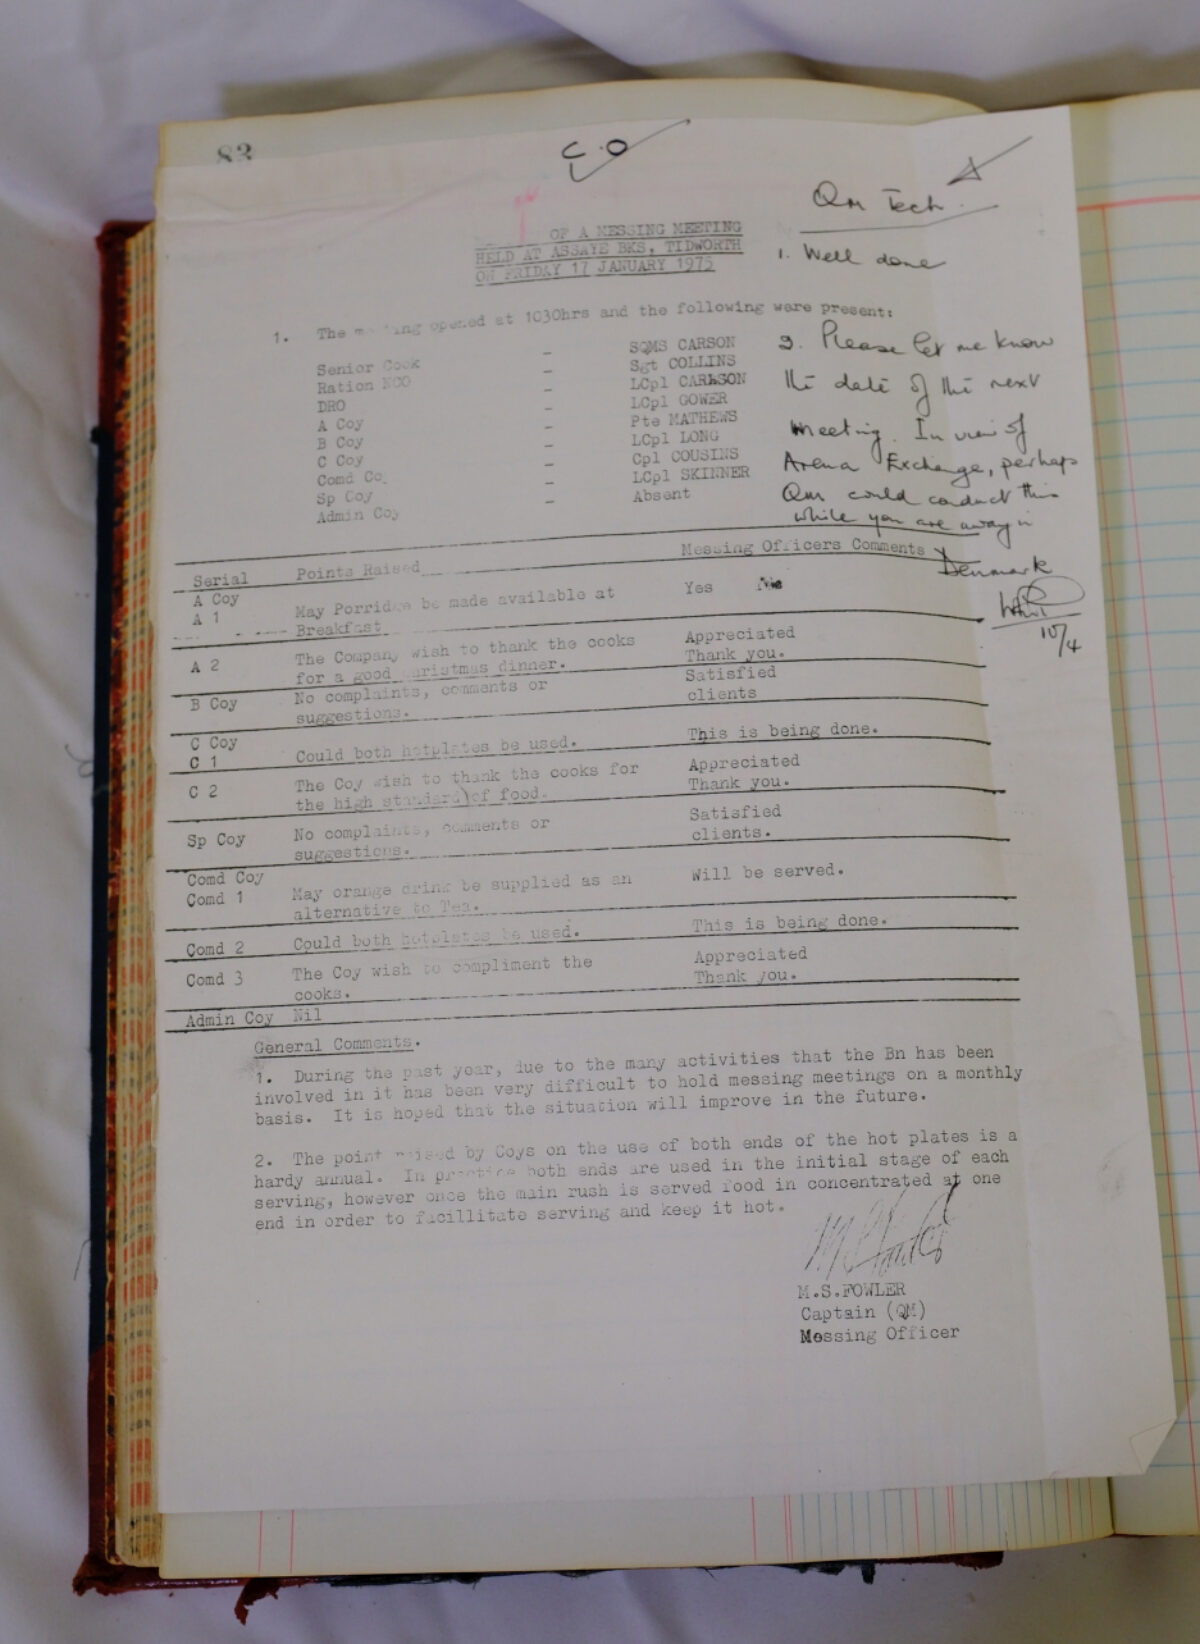 83
C.O
Qm Tech.
OF A MESSING MEETING
HELD AT ASSAYE BKS, TIDWORTH
ON FRIDAY 17 JANUARY 1975
1. Well done
1. The meeting opened at 1030hrs and the following were present:
Senior Cook - SQMS CARSON
Ration NCO - Sgt COLLINS
DRO - LCpl CARLSON
A Coy - LCpl GOWER
B Coy - Pte MATHEWS
C Coy - LCpl LONG
Comd Co - Cpl COUSINS
Sp Coy - LCpl SKINNER
Admin Coy - Absent
2. Please let me know
the date of the next
meeting. In view of
Arena Exchange, perhaps
Qm could conduct this
while you are away in
Denmark
10/4
Serial Points Raised Messing Officers Comments
A Coy
A 1 May Porridge be made available at Yes
Breakfast
A 2 The Company wish to thank the cooks Appreciated
for a good christmas dinner. Thank you.
B Coy No complaints, comments or Satisfied
suggestions. clients
C Coy
C 1 Could both hotplates be used. This is being done.
C 2 The Coy wish to thank the cooks for Appreciated
the high standard of food. Thank you.
Sp Coy No complaints, comments or Satisfied
suggestions. clients.
Comd Coy
Comd 1 May orange drink be supplied as an Will be served.
alternative to Tea.
Comd 2 Could both hotplates be used. This is being done.
Comd 3 The Coy wish to compliment the Appreciated
cooks. Thank you.
Admin Coy Nil
General Comments.
1. During the past year, due to the many activities that the Bn has been
involved in it has been very difficult to hold messing meetings on a monthly
basis. It is hoped that the situation will improve in the future.
2. The point raised by Coys on the use of both ends of the hot plates is a
hardy annual. In practice both ends are used in the initial stage of each
serving, however once the main rush is served food in concentrated at one
end in order to facillitate serving and keep it hot.
M.S.FOWLER
Captain (QM)
Messing Officer